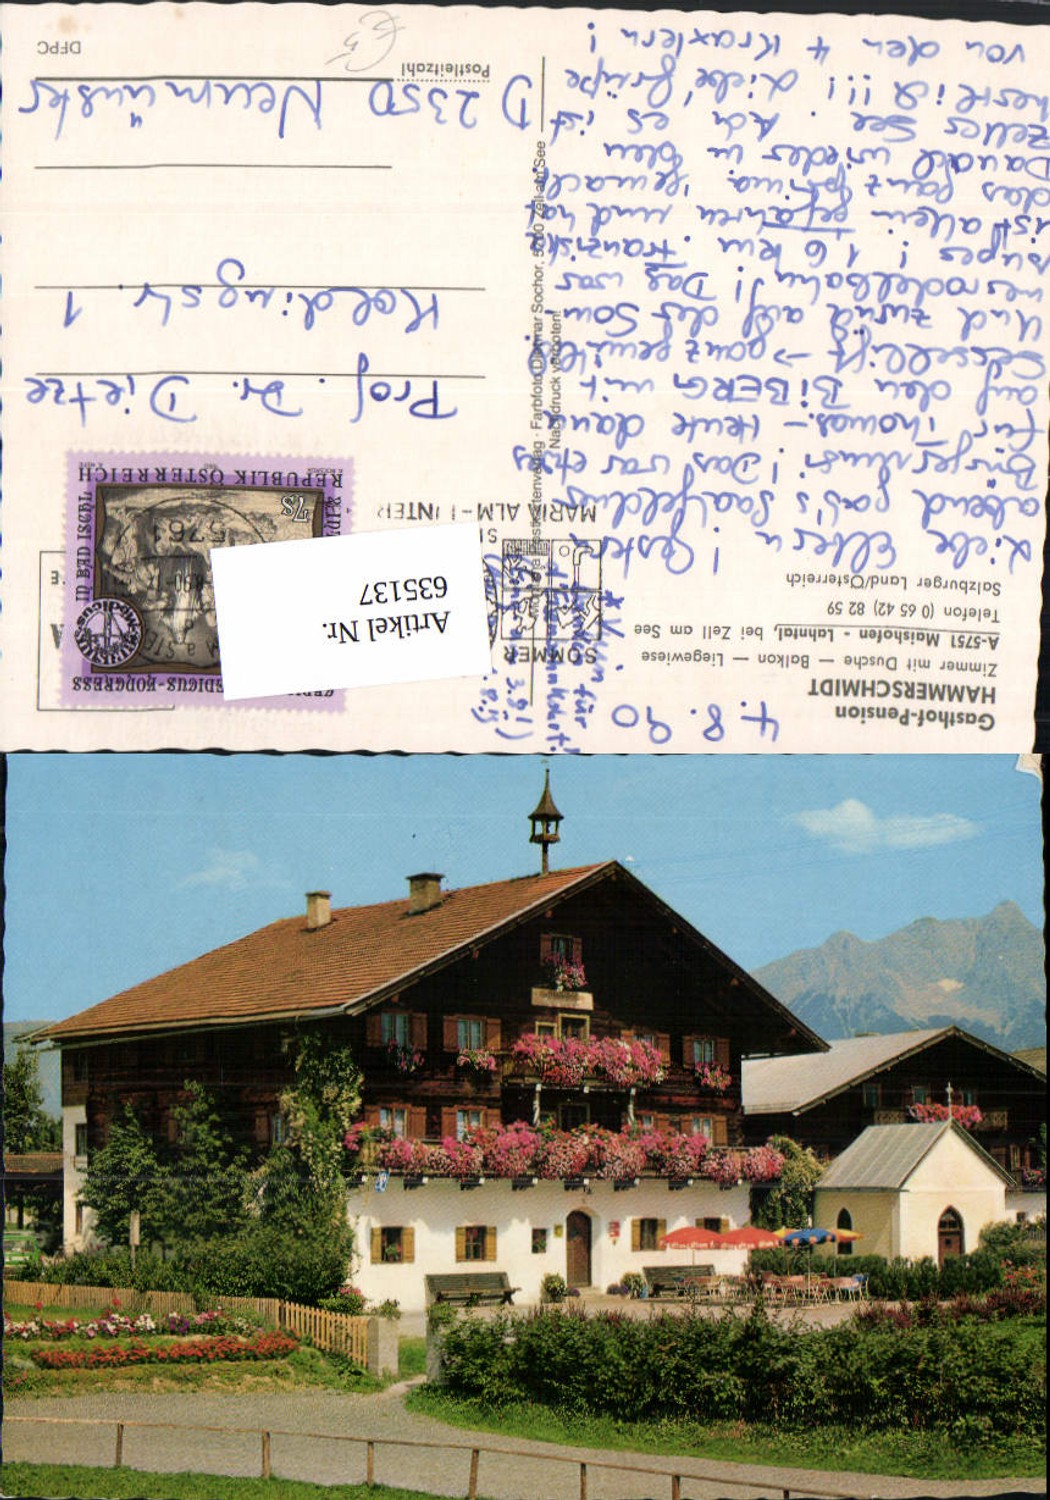 Gasthof-Pension
HAMMERSCHMIDT
Zimmer mit Dusche — Balkon — Liegewiese
A-5751 Maishofen - Lahntal, bei Zell am See
Telefon (0 65 42) 82 59
Salzburger Land/Österreich
4.8.90
Liebe Eltern! Gestern
abend gab's Saalfeldner
Bürgermusi! Das war etwas
für Thomas - Heute dann
auf den BIBERG mit
Sessellift → ganz gemütl.
Und zurück auf der Som-
merrodelbahn!! Das war
super! 16 km. Franziska
ist allein gefahren und hat
das ganz prima gemacht
Danach wieder in den
Zeller See. Ach es ist
herrlich!!! Liebe Grüße
von den 4 Kraxlern!
Postkartenverlag · Farbfoto Dietmar Sochor, 5700 Zell am See
Nachdruck verboten!
SOMMER
MARIA ALM-HINTER
5761
REPUBLIK ÖSTERREICH
7s
IN BAD ISCHL
MEDICUS-KONGRESS
Artikel Nr.
635137
Prof. Dr. Dietze
Koldingstr. 1
D 2350 Neumünster
Postleitzahl
DFPC